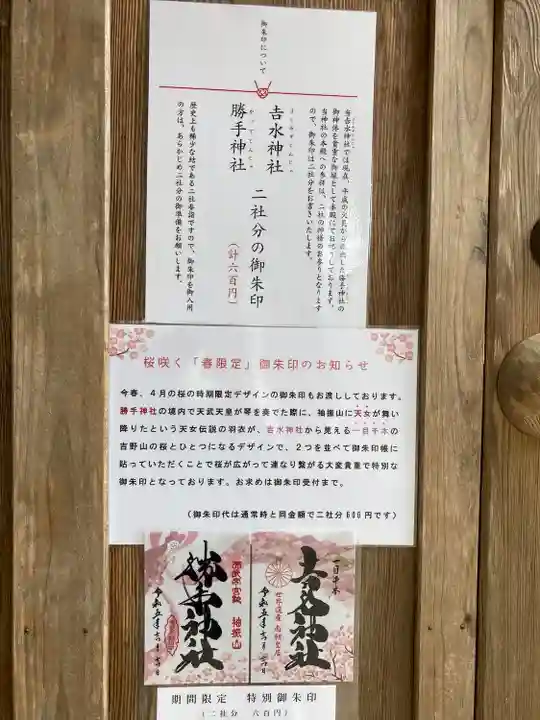 御朱印について
当吉水神社では現在、平成の火災から救出した勝手神社の
御神体を貴重な御縁として本殿にてお祀りしております。
当神社の本殿への参拝は、二社の神様のお参りとなります
ので、御朱印は二社分をお書きいたします。
吉水神社
勝手神社
二社分の御朱印
(計六百円)
歴史上も稀少な地である二社参詣ですので、御朱印を御入用
の方は、あらかじめ二社分の御準備をお願いします。
桜咲く「春限定」御朱印のお知らせ
今春、4月の桜の時期限定デザインの御朱印もお渡ししております。
勝手神社の境内で天武天皇が琴を奏でた際に、袖振山に天女が舞い
降りたという天女伝説の羽衣が、吉水神社から見える一目千本の
吉野山の桜とひとつになるデザインで、2つを並べて御朱印帳に
貼っていただくことで桜が広がって連なり繋がる大変貴重で特別な
御朱印となっております。お求めは御朱印受付まで。
(御朱印代は通常時と同金額で二社分600円です)
一目千本
吉水神社
世界遺産 南朝皇居
令和五年 月 日
袖振山
勝手神社
令和五年 月 日
期間限定 特別御朱印
(二社分 六百円)